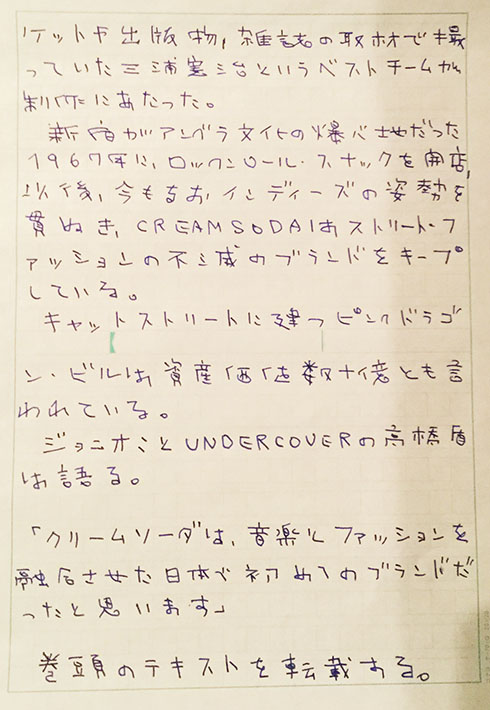 ケットや出版物,雑誌の取材で撮
っていた三浦憲治というベストチームが
制作にあたった。
新宿がアングラ文化の爆心地だった
1967年に,ロックンロール・スナックを開店,
以後,今もなおインディーズの姿勢を
貫ぬき,CREAMSODAはストリート・フ
ァッションの不滅のブランドをキープ
している。
キャットストリートに建つピンクドラゴ
ン・ビルは資産価値数十億とも言
われている。
ジョニオことUNDERCOVERの高橋盾
は語る。
「クリームソーダは、音楽とファッションを
融合させた日本で初めてのブランドだ
ったと思います」
巻頭のテキストを転載する。